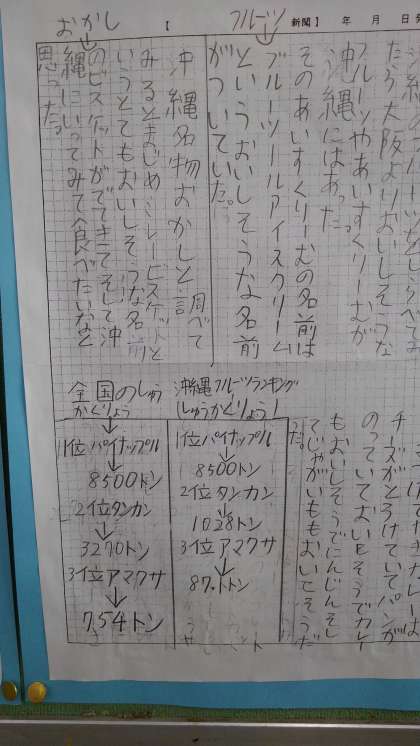 おかし
【
フルーツ
新聞】 年 月 日
たら大阪よりおいしそうな
フルーツやあいすくりーむが
沖縄にはあった。
そのあいすくりーむの名前は
ブルーツールアイスクリーム
というおいしそうな名前
がついていた。
沖縄名物おかしと調べて
みるとまじめミレービスケットと
いうとてもおいしそうな名前
のビスケットがでてきてそして沖
縄にいってみて食べたいなと
思った。
チーズがとろけていてパンが
のっていておいしそうでカレー
もおいしそうでにんじんそし
てじゃがいももおいしそうだ
だ。
沖縄フルーツランキング
(しゅうかくりょう)
1位パイナップル
8500トン
2位タンカン
1028トン
3位アマクサ
87.1トン
全国のしゅう
かくりょう
1位パイナップル
8500トン
2位タンカン
3270トン
3位アマクサ
754トン